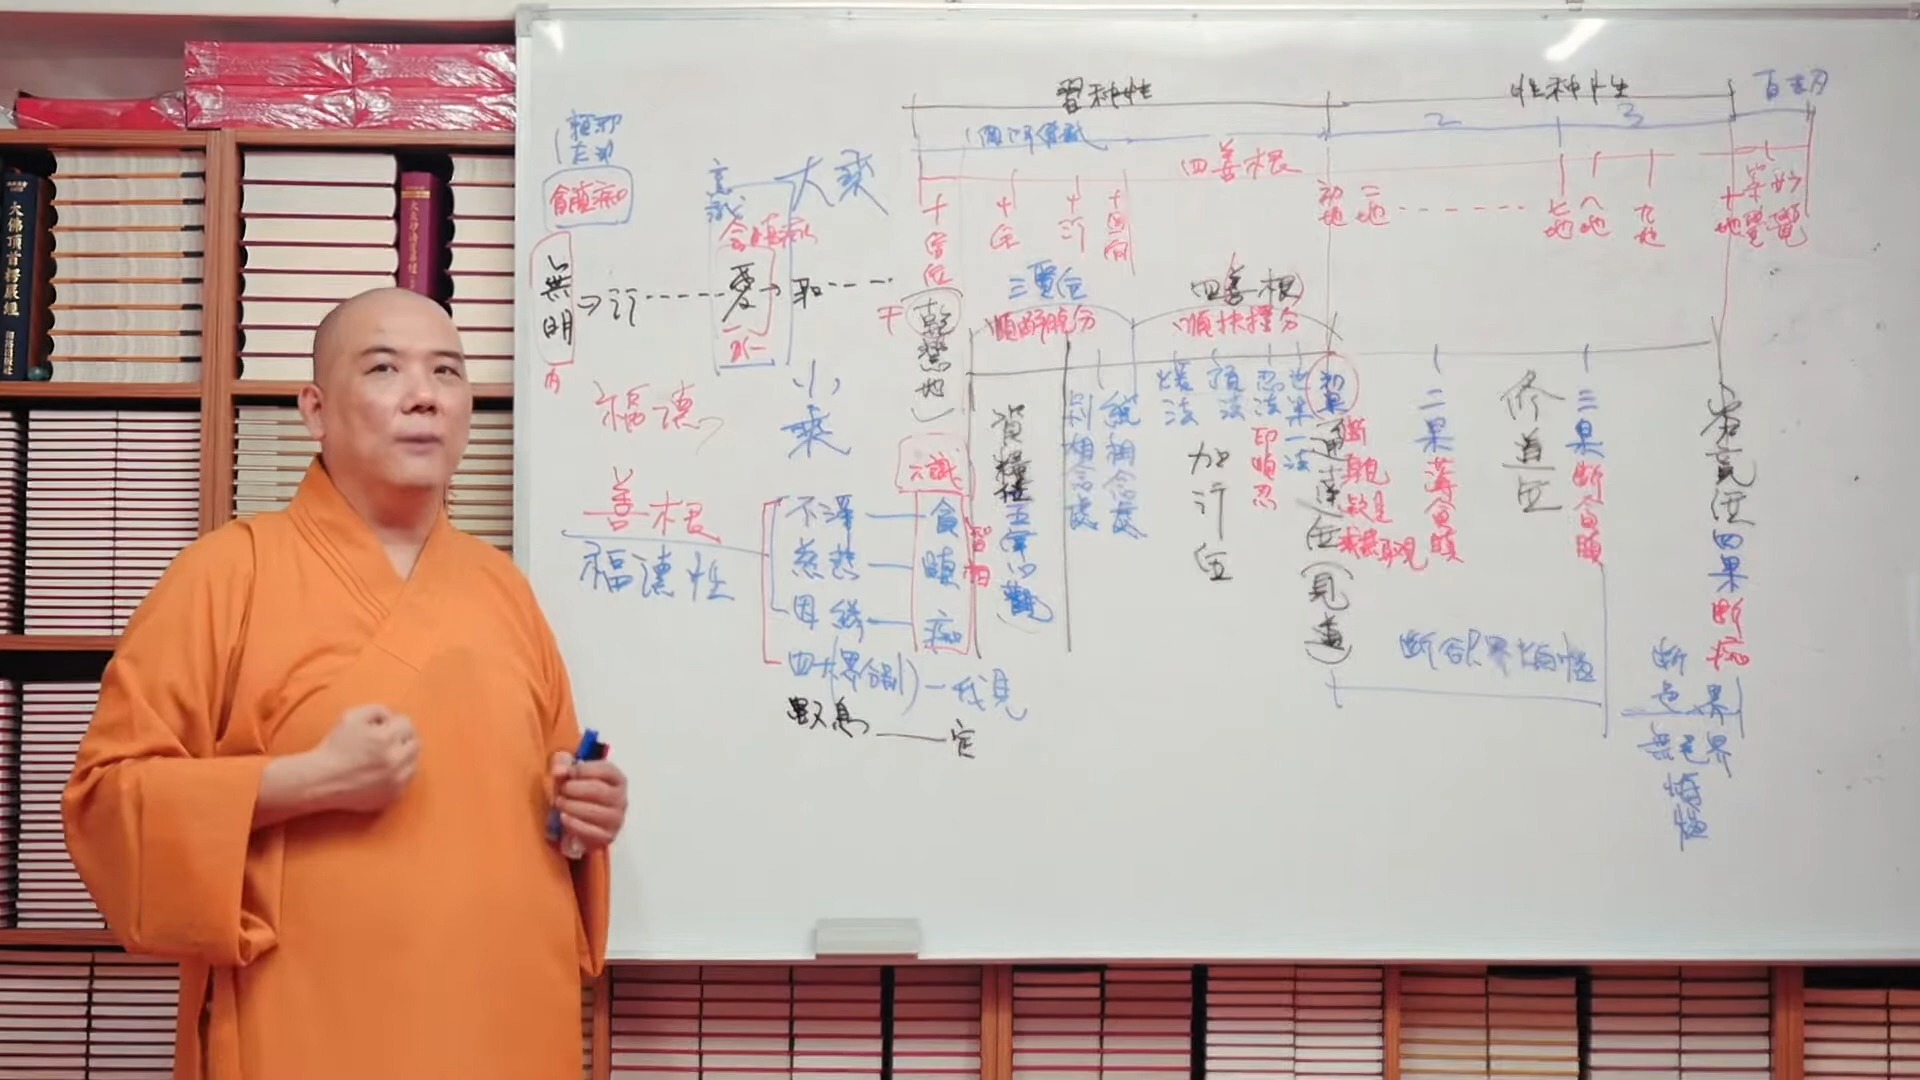 習种性
性种性
2
3
大乘
四善根
十信位
十住
十行
十迴向
初地
二地
七地
八地
九地
十地
等覺
妙覺
貪瞋痴
無明
行
愛
取
內
三賢位
順解脫分
四善根
順抉擇分
干
乾慧地
福德
善根
福德性
小乘
六識
不淨
貪
慈悲
瞋
因緣
痴
四大(界分別)
我見
數息
定
資糧位
五停心觀
別相念處
總相念處
煖法
頂法
忍法
世第一法
印順忍
加行位
初果
通達位(見道)
二果薄貪瞋
修道位
三果斷貪瞋
究竟位
四果斷痴
斷欲界煩惱
斷色界
無色界
煩惱
大佛頂首楞嚴經